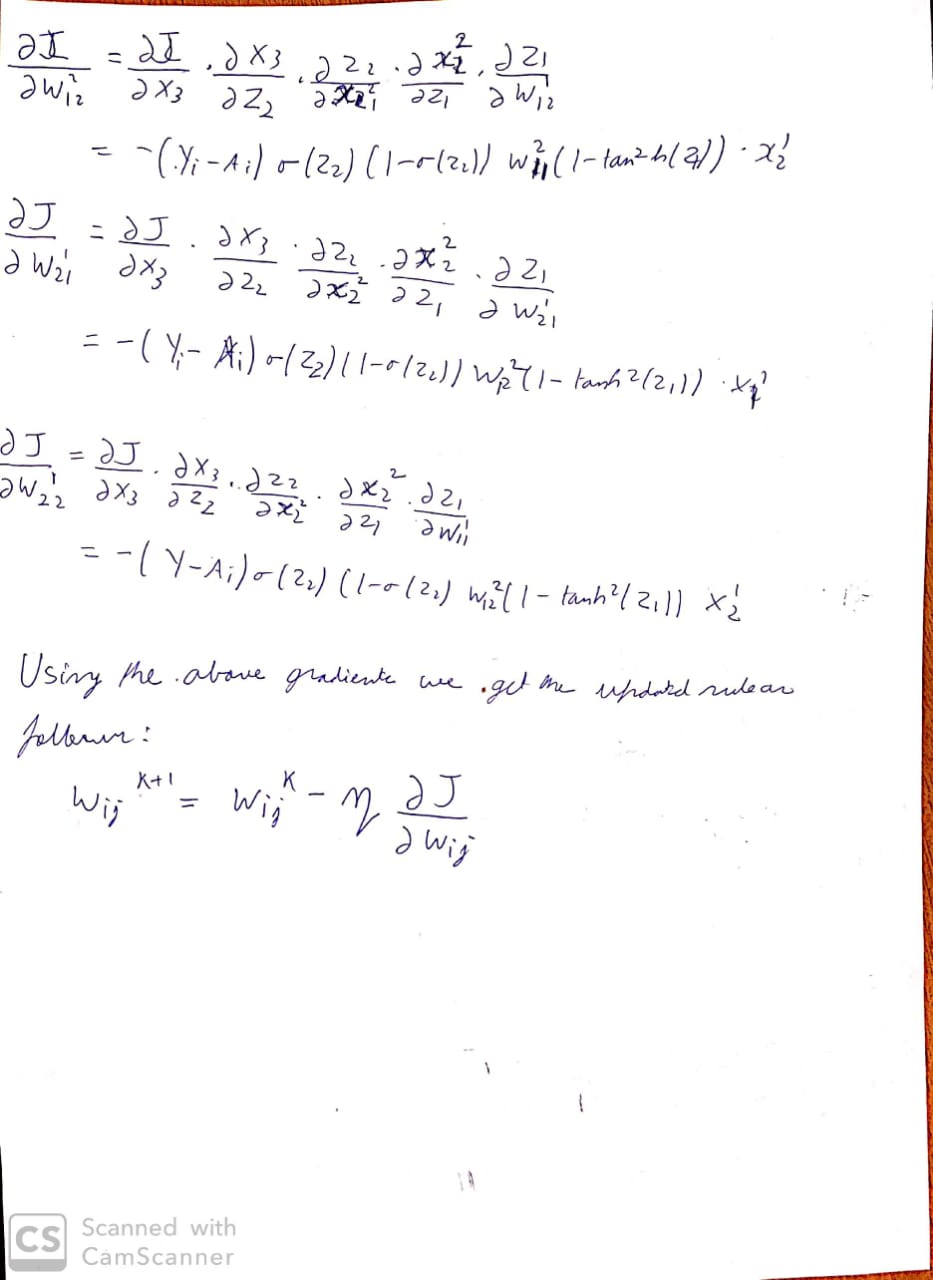 ∂J/∂W₁₂² = ∂J/∂X₃ · ∂X₃/∂Z₂ · ∂Z₂/∂X₁² · ∂X₁²/∂Z₁ · ∂Z₁/∂W₁₂¹
= -(Yi - Ai) σ(Z₂) (1-σ(Z₂)) W₁₁² (1-tan²h(Z₁)) · X₂¹
∂J/∂W₂₁¹ = ∂J/∂X₃ · ∂X₃/∂Z₂ · ∂Z₂/∂X₂² · ∂X₂²/∂Z₁ · ∂Z₁/∂W₂₁¹
= -(Yi - Ai) σ(Z₂) (1-σ(Z₂)) W₁₂² (1-tanh²(Z₁)) · X₁¹
∂J/∂W₂₂¹ = ∂J/∂X₃ · ∂X₃/∂Z₂ · ∂Z₂/∂X₂² · ∂X₂²/∂Z₁ · ∂Z₁/∂W₁₁¹
= -(Y-Ai) σ(Z₂) (1-σ(Z₂) W₁₂² (1-tanh²(Z₁)) X₂¹
Using the above gradients we get the
Wij^K+1 = Wij^K - η ∂J/∂Wij
CS Scanned with
CamScanner